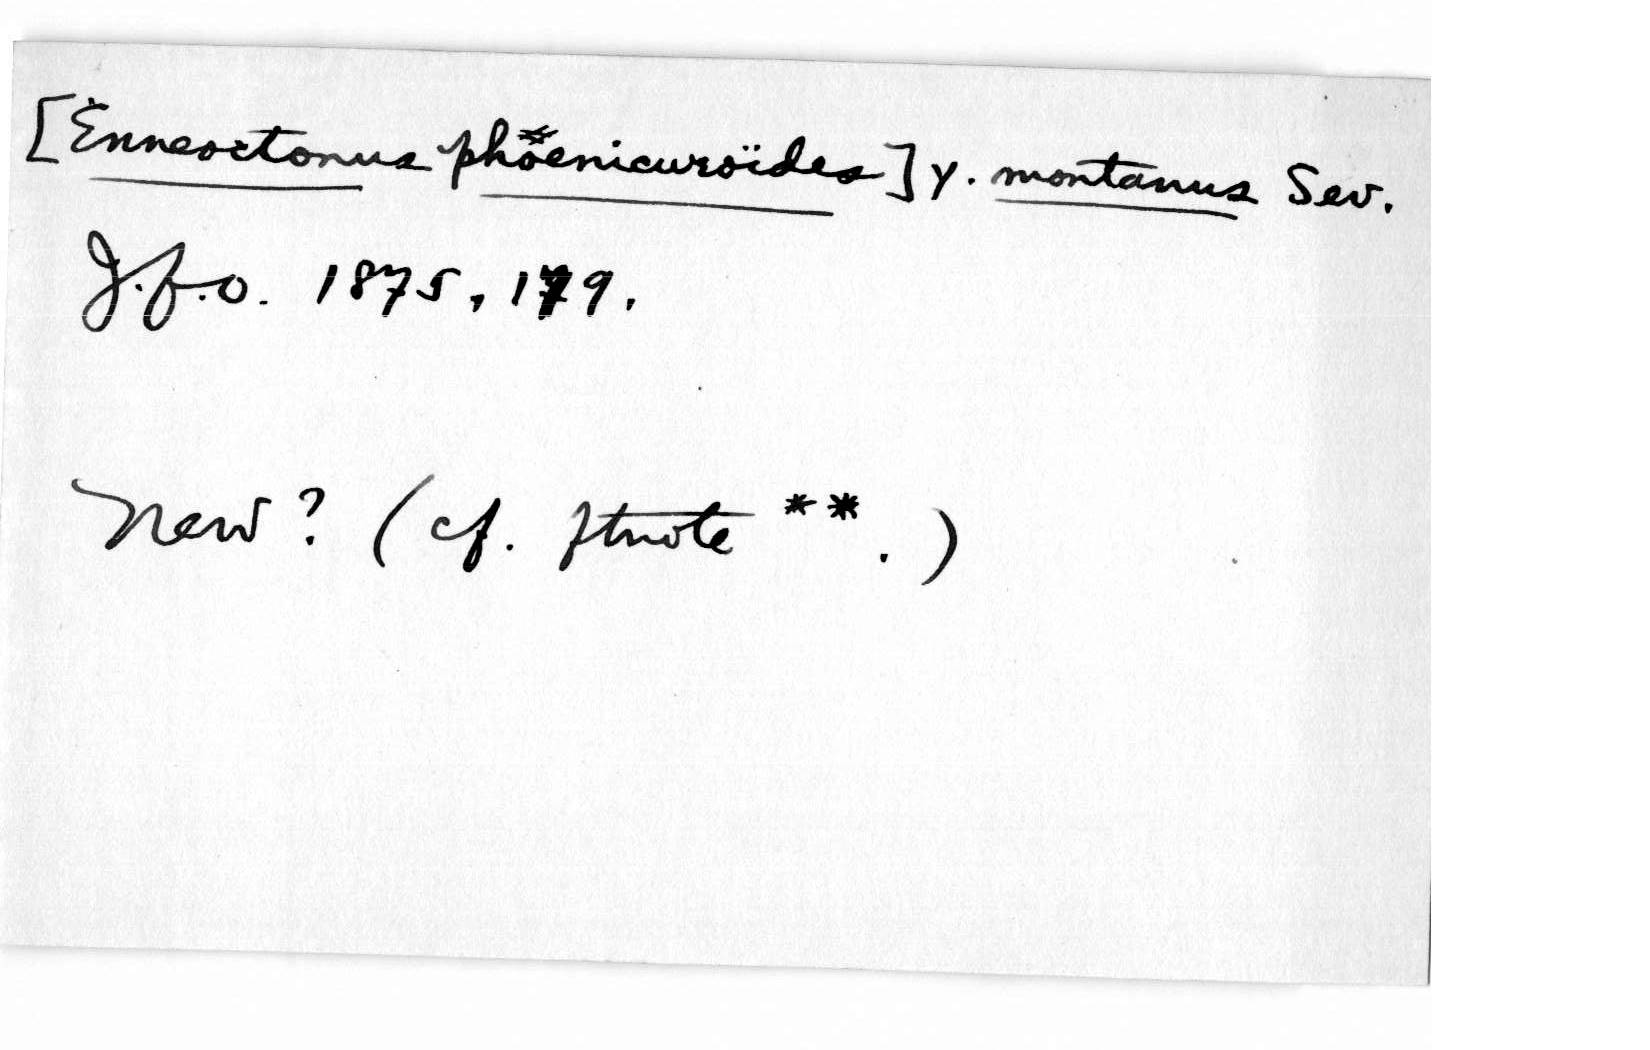 [Enneoctonus phoenicuroïdes] γ. montanus Sev.
J.f.O. 1875, 179.
New? (cf. ftnote **.)